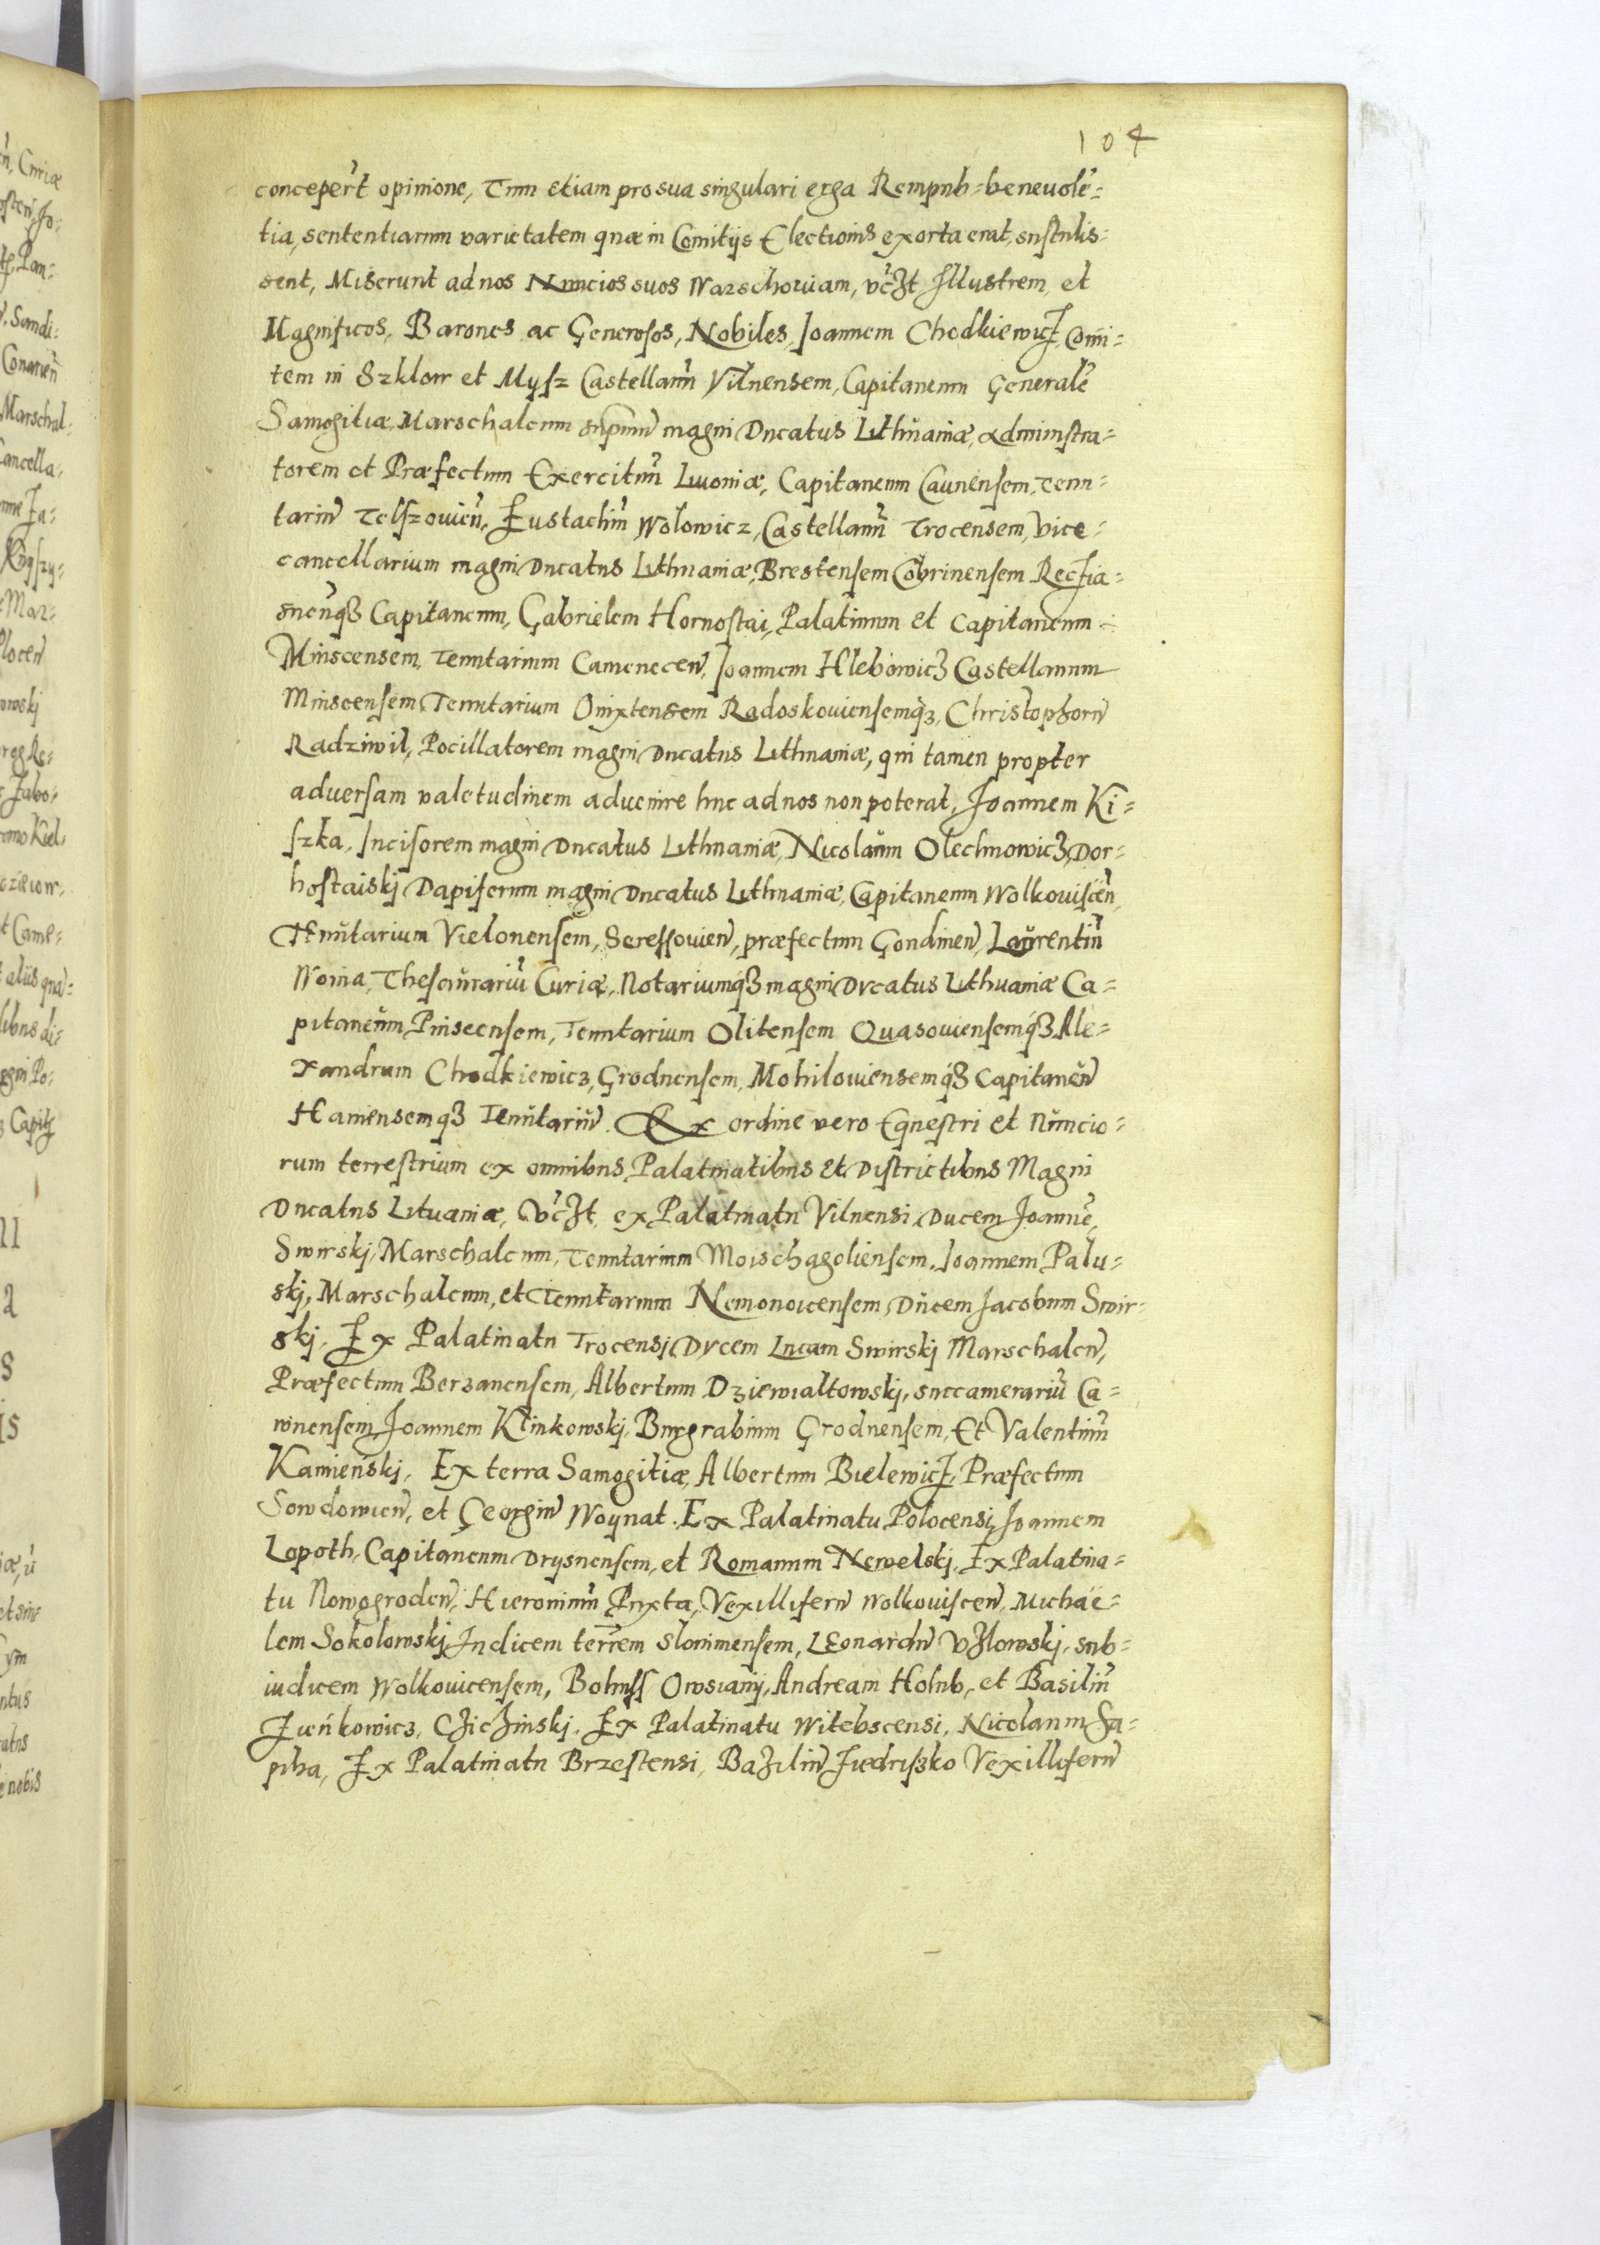 104
concepert opinione, Tum etiam pro sua singulari erga Rempub= beneuolē=
tia, sententiarum varietatem quæ in Comitijs Electionis exorta erat, sustulis=
sent, Miserunt ad nos Nuncios suos Warschoviam, vczt Illustrem, et
Magnificos, Barones ac Generosos, Nobiles, Joannem Chodkiewicz, Comi=
tem in Szklow et Mysz Castellanū Vilnensem, Capitaneum Generalē
Samogitiæ, Marschalcum supmū magni Ducatus Lithuaniæ, Administra=
torem et Præfectum Exercituū Livoniæ, Capitaneum Caunensem, Tenu=
tariū Telszovien, Eustachiū Wolowicz, Castellanū Trocensem, Vice=
cancellarium magni Ducatus Lithuaniæ, Brestensem Cobrinensem Reczia=
snenq3 Capitaneum, Gabrielem Hornostai, Palatinum et Capitaneum
Minscensem, Tenutarium Camenecen, Joannem Hlebowicz Castellanum
Minscensem Tenutarium Onixtensem Radoskoviensemq3, Christophorū
Radziwil, Pocillatorem magni Ducatus Lithuaniæ, qui tamen propter
adversam valetudinem advenire huc ad nos non poterat, Joannem Ki=
szka, Incisorem magni Ducatus Lithuaniæ, Nicolaum Olechnowicz, Dor=
hostaiskj Dapiferum magni Ducatus Lithuaniæ, Capitaneum Wolkoviscen,
Tenutarium Vielonensem, Seressovien, præfectum Gondinen, Laurentiū
Woina, Thesaurariū Curiæ, Notariumq3 magni Ducatus Lithuaniæ Ca=
pitaneum Pinscensem, Tenutarium Olitensem Quasoviensemq3 Ale=
xandrum Chodkiewicz, Grodnensem, Mohiloviensemq3 Capitaneū
Hamensemq3 Tenutariū. Ex ordine vero Equestri et Nuncio=
rum terrestrium ex omnibus Palatinatibus et Districtibus Magni
Ducatus Lituaniæ, vczt ex Palatinatu Vilnensi Ducem Joannē,
Swirskj, Marschalcum, Tenutarium Moischagoliensem, Joannem Palu=
skj, Marschalcum, et Tenutarium Nemonoicensem, Ducem Jacobum Swir=
skj. Ex Palatinatu Trocensj Ducem Lucam Swirskj Marschalcū,
Præfectum Berzanensem, Albertum Dziewialtowskj, succamerariū Ca=
wnensem Joannem Klinkowskj, Burgrabium Grodnensem, Et Valentinū
Kamieńskj, Ex terra Samogitiæ, Albertum Bielewicz, Præfectum
Sowdowien, et Georgiū Woynat. Ex Palatinatu Polocensi, Joannem
Lopoth, Capitaneum Drysnensem, et Romanum Newelskj. Ex Palatina=
tu Nowogroden, Hieronimū Puxta, Vexilliferū Wolkoviscen, Michae=
lem Sokolowskj Judicem terrem Slonimensem, Leonardū Vzlowskj, sub=
iudicem Wolkovicensem, Bohuss Owsianij, Andream Holub, et Basiliū
Zieńkowicz, Cziczinskj. Ex Palatinatu Witebscensi, Nicolaum Sa=
piha, Ex Palatinatu Brzestensi, Baziliū Jiedriszko Vexilliferū